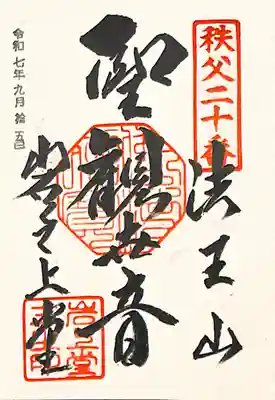 秩父二十番
法王山
聖観世音
岩之上堂
令和七年九月拾五日